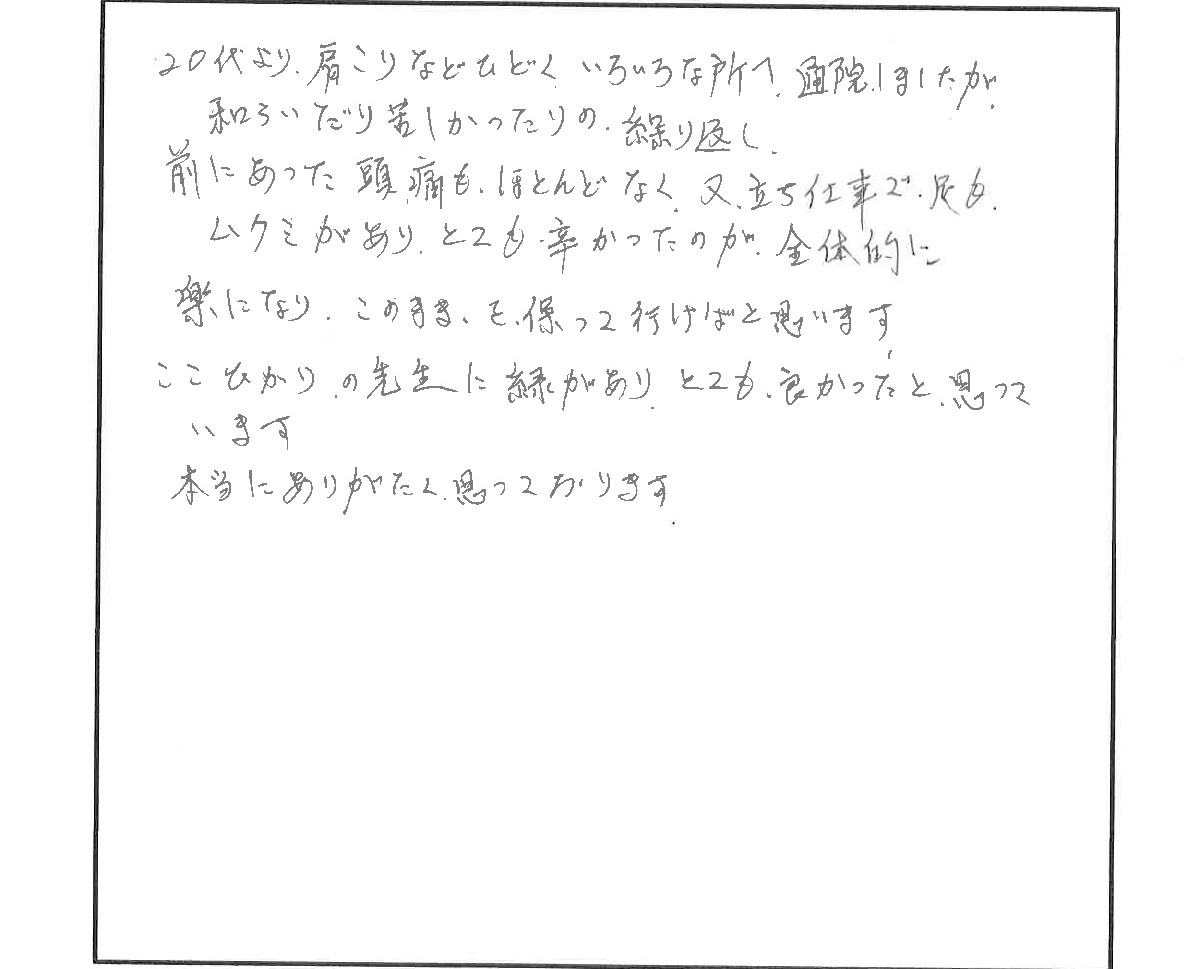 20代より、肩こりなどひどく、いろいろな所へ、通院しましたが、
和らいだり苦しかったりの、繰り返し、
前にあった頭痛も、ほとんどなく、又、立ち仕事で、足も、
ムクミがあり、とても、辛かったのが、全体的に
楽になり、このまま、を、保って行ければと思います
ここひかり、の先生に縁があり、とても、良かったと、思って
います
本当にありがたく、思っております、